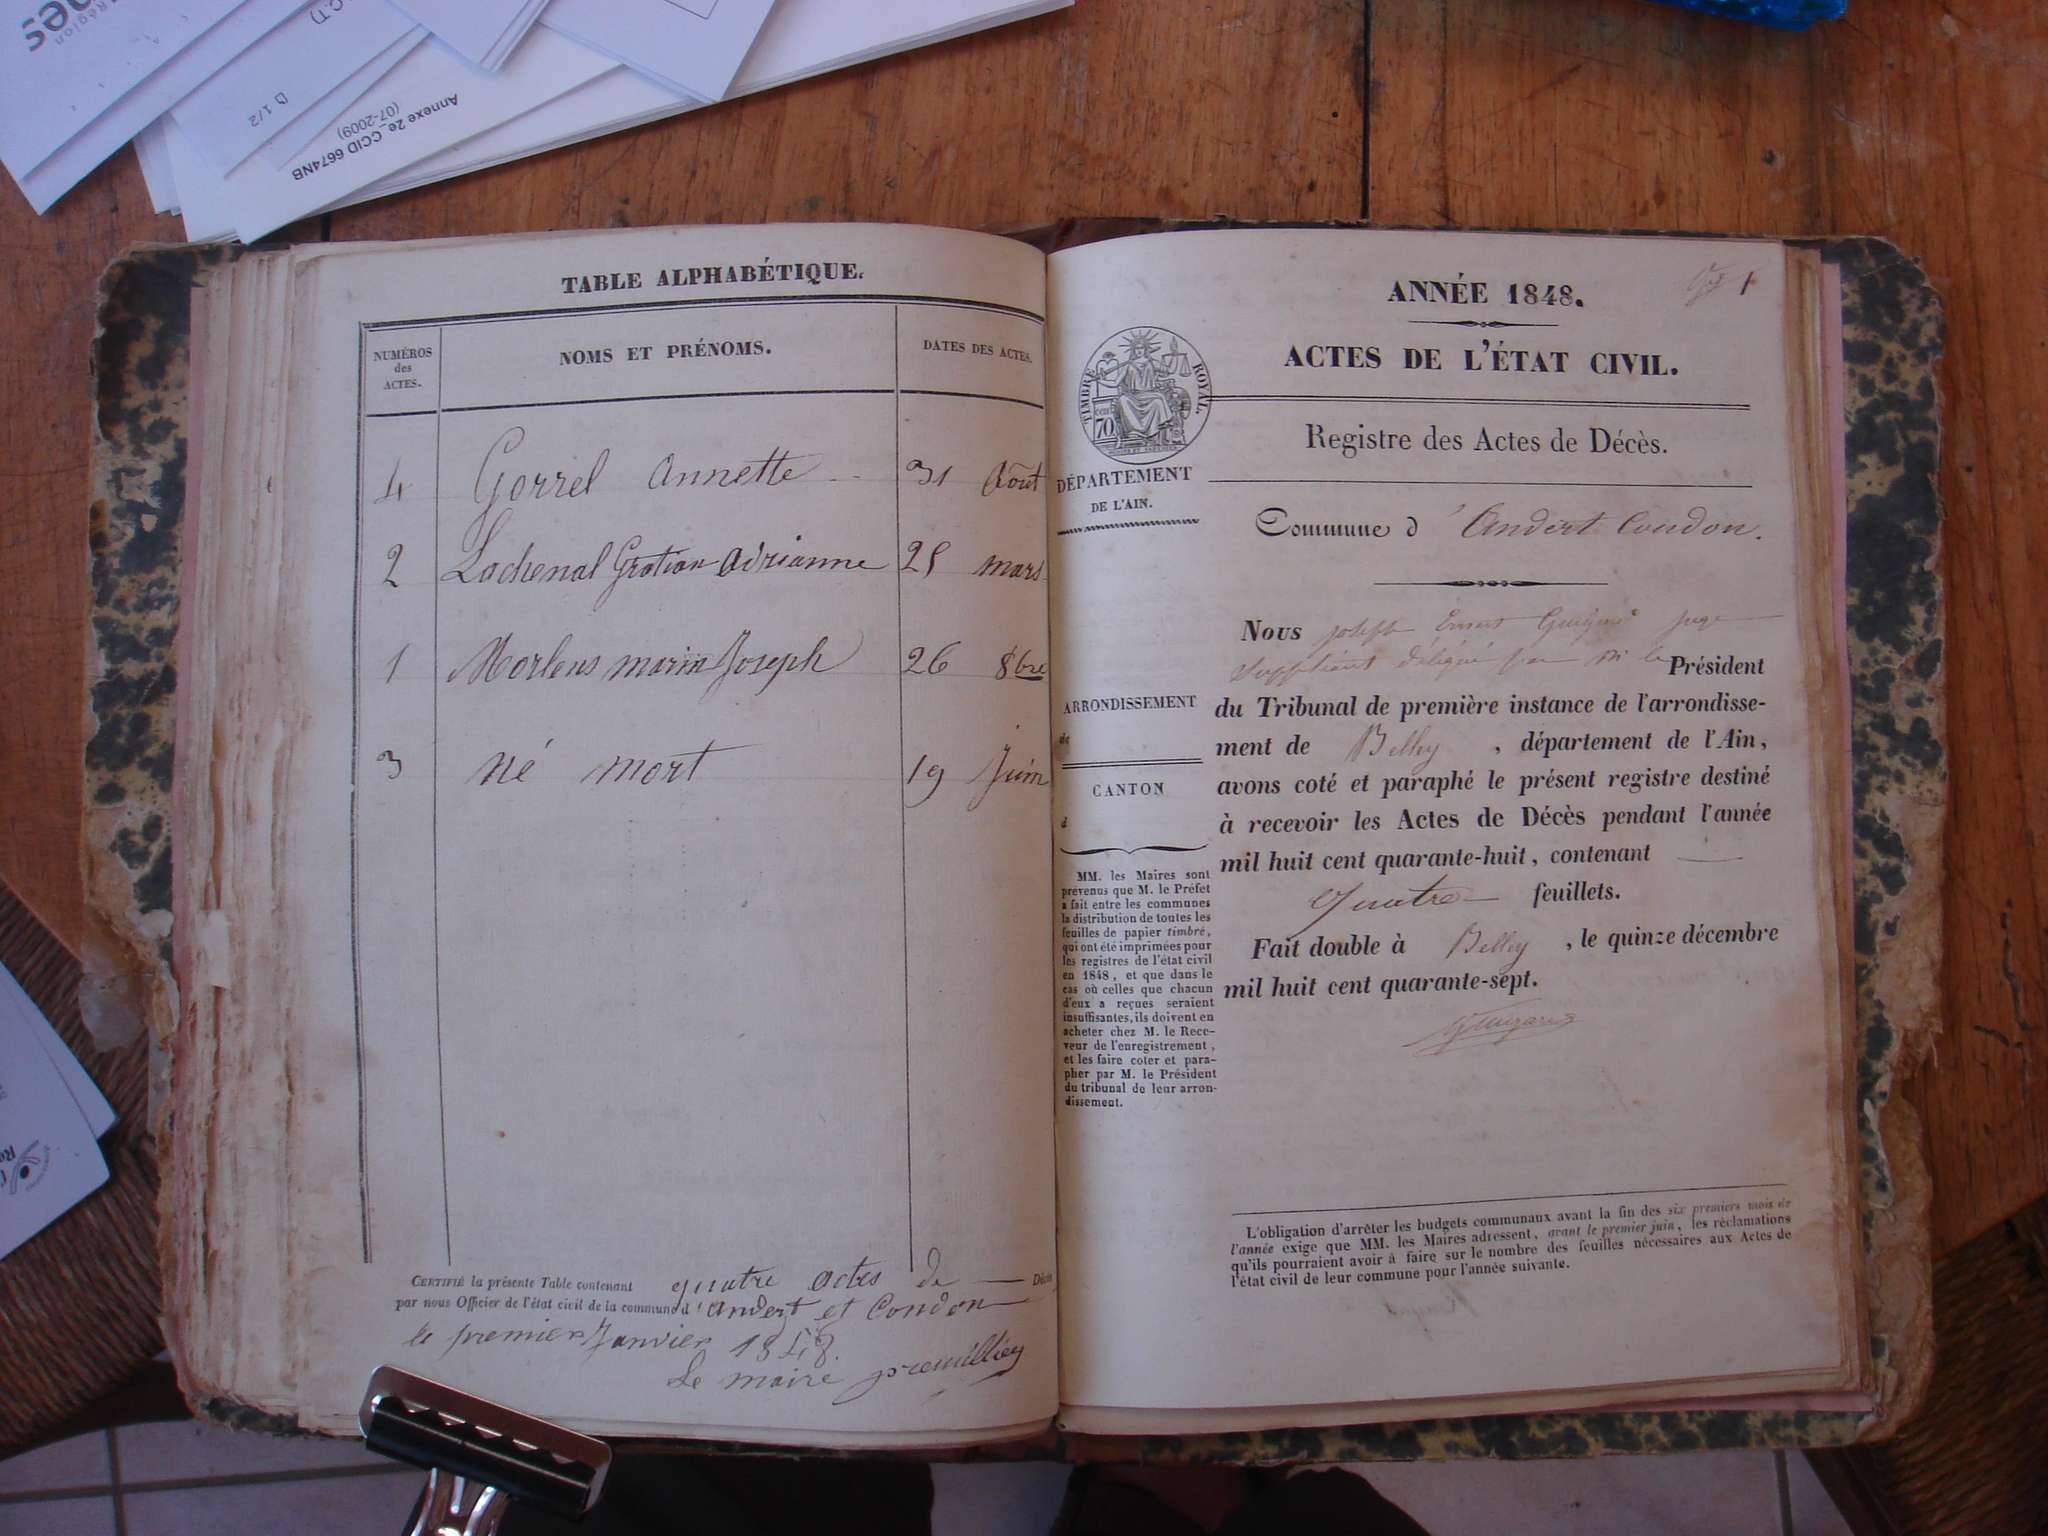 Annexe 2e_CCID 6674NB
(07-2009)
D 1/2
TABLE ALPHABÉTIQUE.
NUMÉROS des ACTES.
NOMS ET PRÉNOMS.
DATES DES ACTES.
4 Gorrel Annette 31 Août
2 Lachenal Gratian Adrianne 25 mars
1 Morlens marin Joseph 26 8bre
3 né mort 19 Juin
CERTIFIÉ la présente Table contenant quatre actes de Décès
par nous Officier de l'état civil de la commune d'Andert et Condon
le premier Janvier 1848.
Le maire premillieu
1
ANNÉE 1848.
ACTES DE L'ÉTAT CIVIL.
TIMBRE ROYAL.
cent 70
Registre des Actes de Décès.
DÉPARTEMENT
DE L'AIN.
Commune d'Andert Condon.
ARRONDISSEMENT
de
CANTON
d
MM. les Maires sont
prévenus que M. le Préfet
a fait entre les communes
la distribution de toutes les
feuilles de papier timbré,
qui ont été imprimées pour
les registres de l'état civil
en 1848, et que dans le
cas où celles que chacun
d'eux a reçues seraient
insuffisantes, ils doivent en
acheter chez M. le Rece-
veur de l'enregistrement,
et les faire coter et para-
pher par M. le Président
du tribunal de leur arron-
dissement.
Nous joseph Ernest juge
suppléant délégué par M. le Président
du Tribunal de première instance de l'arrondisse-
ment de Belley, département de l'Ain,
avons coté et paraphé le présent registre destiné
à recevoir les Actes de Décès pendant l'année
mil huit cent quarante-huit, contenant
Quatre feuillets.
Fait double à Belley, le quinze décembre
mil huit cent quarante-sept.
L'obligation d'arrêter les budgets communaux avant la fin des six premiers mois de
l'année exige que MM. les Maires adressent, avant le premier juin, les réclamations
qu'ils pourraient avoir à faire sur le nombre des feuilles nécessaires aux Actes de
l'état civil de leur commune pour l'année suivante.